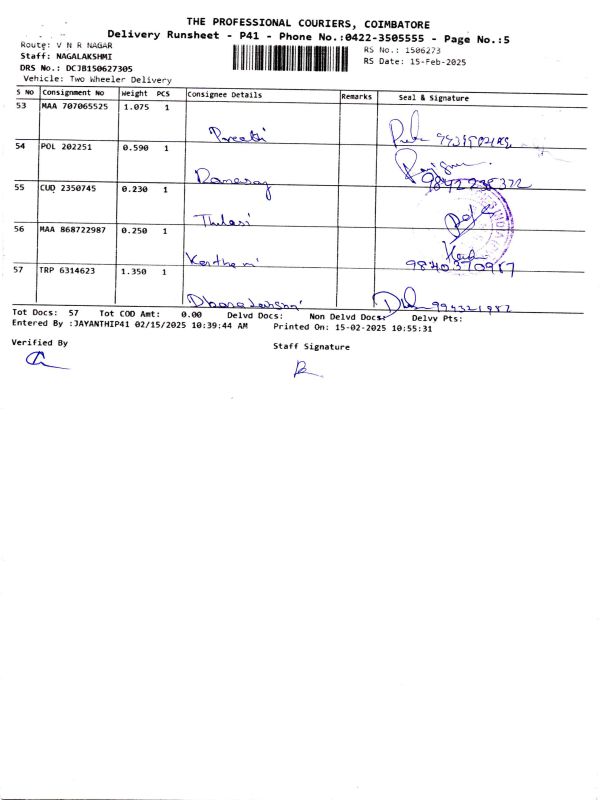 THE PROFESSIONAL COURIERS, COIMBATORE
Delivery Runsheet - P41 - Phone No.:0422-3505555 - Page No.:5
Route: V N R NAGAR
RS No.: 1506273
Staff: NAGALAKSHMI
RS Date: 15-Feb-2025
DRS No.: DCJB150627305
Vehicle: Two Wheeler Delivery
S No Consignment No Weight PCS Consignee Details Remarks Seal & Signature
53 MAA 707065525 1.075 1
Preethi
54 POL 202251 0.590 1
9842238322
55 CUD 2350745 0.230 1
Thulasi
56 MAA 868722987 0.250 1
9840370987
57 TRP 6314623 1.350 1
Tot Docs: 57 Tot COD Amt: 0.00 Delvd Docs: Non Delvd Docs: Delvy Pts:
Entered By :JAYANTHIP41 02/15/2025 10:39:44 AM Printed On: 15-02-2025 10:55:31
Verified By
Staff Signature